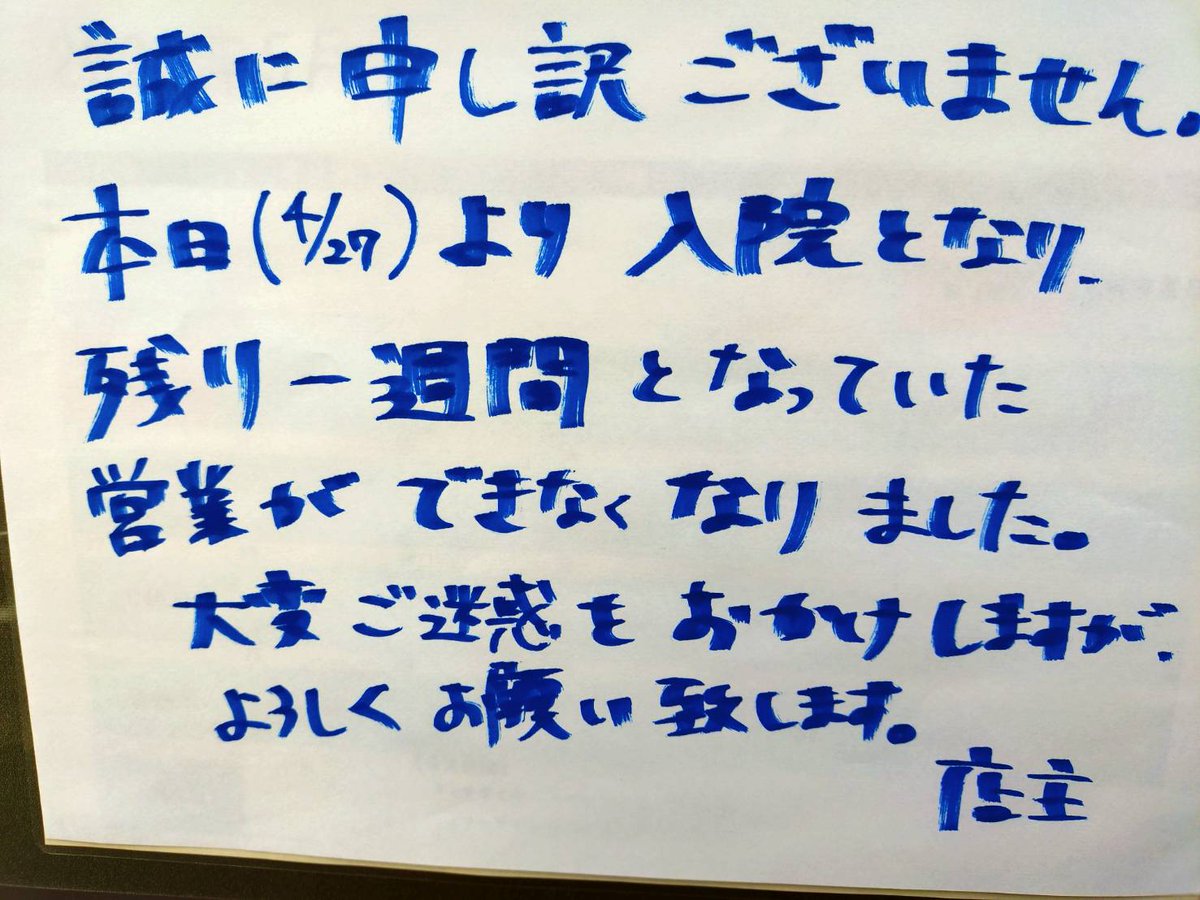 誠に申し訳ございません.
本日(4/27)より入院となり、
残り一週間となっていた
営業ができなくなりました。
大変ご迷惑をおかけしますが、
よろしくお願い致します。
店主